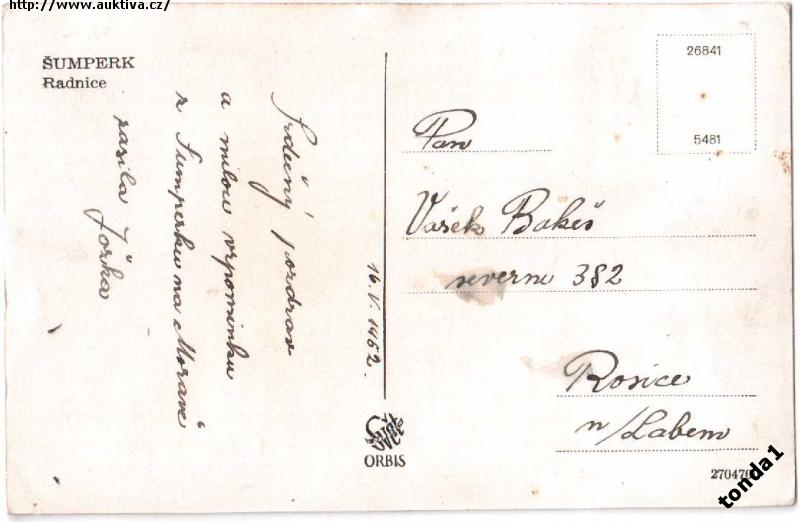 http://www.auktiva.cz/
ŠUMPERK
Radnice
Srdečný pozdrav
a milou vzpomínku
z Šumperku na Moravě
zasílá Jorka
16.V.1952.
ORBIS
26841
5481
Pan
Vašek Bakeš
severní 382
Rosice
n/Labem
270470
tonda1